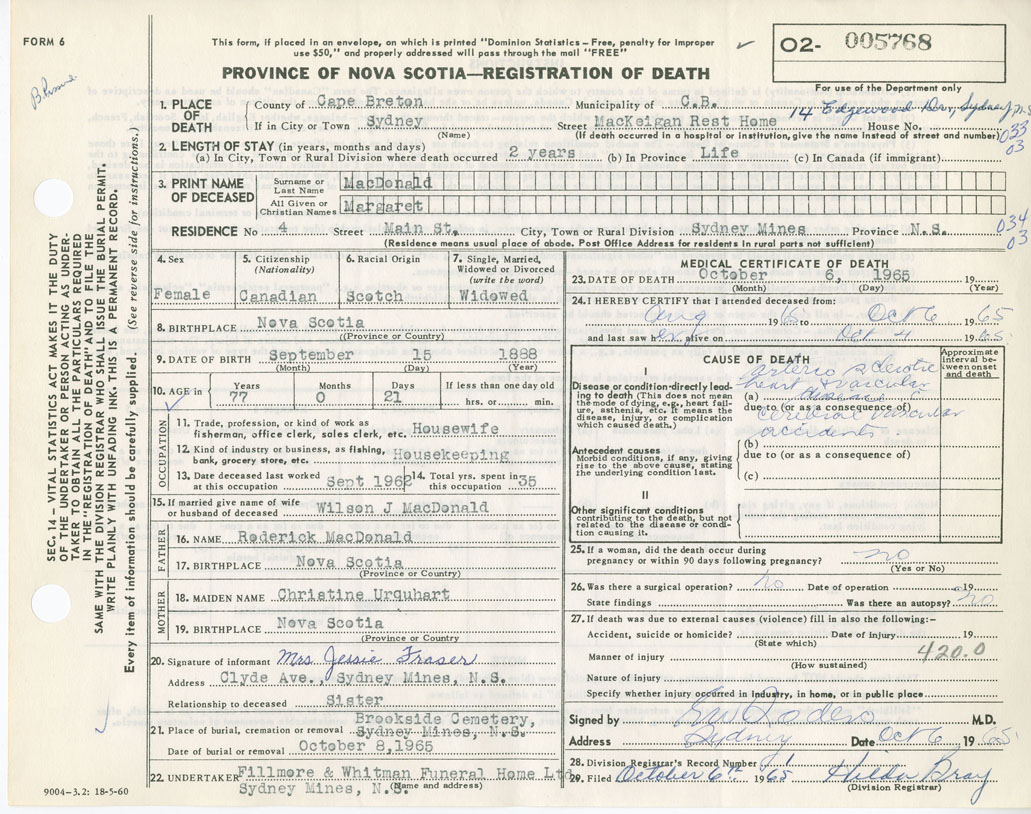 FORM 6
This form, if placed in an envelope, on which is printed "Dominion Statistics – Free, penalty for improper
use $50," and properly addressed will pass through the mail "FREE"
O2- 005768
PROVINCE OF NOVA SCOTIA—REGISTRATION OF DEATH
For use of the Department only
SEC. 14 – VITAL STATISTICS ACT MAKES IT THE DUTY
OF THE UNDERTAKER OR PERSON ACTING AS UNDER-
TAKER TO OBTAIN ALL THE PARTICULARS REQUIRED
IN THE "REGISTRATION OF DEATH" AND TO FILE THE
SAME WITH THE DIVISION REGISTRAR WHO SHALL ISSUE THE BURIAL PERMIT.
WRITE PLAINLY WITH UNFADING INK–THIS IS A PERMANENT RECORD.
Every item of information should be carefully supplied. (See reverse side for instructions.)
1. PLACE OF DEATH
County of Cape Breton Municipality of C.B. 14 Edgewood Dr, Sydney, N.S.
If in City or Town Sydney Street MacKeigan Rest Home House No.
(Name) (If death occurred in a hospital or institution, give the name instead of street and number)
033
03
2. LENGTH OF STAY (in years, months and days)
(a) In City, Town or Rural Division where death occurred 2 years (b) In Province Life (c) In Canada (if immigrant)
3. PRINT NAME OF DECEASED
Surname or Last Name MacDonald
All Given or Christian Names Margaret
RESIDENCE No 4 Street Main St. City, Town or Rural Division Sydney Mines Province N.S.
(Residence means usual place of abode. Post Office Address for residents in rural parts not sufficient)
034
03
4. Sex Female
5. Citizenship (Nationality) Canadian
6. Racial Origin Scotch
7. Single, Married, Widowed or Divorced (write the word) Widowed
8. BIRTHPLACE Nova Scotia
((Province or Country)
9. DATE OF BIRTH September 15 1888
(Month) (Day) (Year)
10. AGE in Years 77 Months 0 Days 21 If less than one day old hrs. or min.
OCCUPATION
11. Trade, profession, or kind of work as
fisherman, office clerk, sales clerk, etc. Housewife
12. Kind of industry or business, as fishing,
bank, grocery store, etc. Housekeeping
13. Date deceased last worked at this occupation Sept 1962 14. Total yrs. spent in this occupation 35
15. If married give name of wife
or husband of deceased Wilson J MacDonald
FATHER
16. NAME Roderick MacDonald
17. BIRTHPLACE Nova Scotia
(Province or Country)
MOTHER
18. MAIDEN NAME Christine Urquhart
19. BIRTHPLACE Nova Scotia
(Province or Country
20. Signature of informant Mrs Jessie Fraser
Address Clyde Ave., Sydney Mines, N.S.
Relationship to deceased Sister
21. Place of burial, cremation or removal Brookside Cemetery,
Sydney Mines, N.S.
Date of burial or removal October 8,1965
22. UNDERTAKER Fillmore & Whitman Funeral Home Ltd
Sydney Mines, N.S. (Name and address)
9004-3.2: 18-5-60
MEDICAL CERTIFICATE OF DEATH
23. DATE OF DEATH October 6, 1965 19
(Month) (Day) (Year)
24. I HEREBY CERTIFY that I attended deceased from:
Aug 19 to Oct 6 19 65
and last saw her alive on Oct 4 19 65
CAUSE OF DEATH
Approximate interval between onset and death
I
Disease or condition-directly lead-
ing to death (This does not mean
the mode of dying, e.g., heart fail-
ure, asthenia, etc. It means the
disease, injury, or complication
which caused death.)
arterio sclerotic
heart & vascular
(a) disease
due to (or as a consequence of)
cerebral vascular
accidents
Antecedent causes
Morbid conditions, if any, giving
rise to the above cause, stating
the underlying condition last.
(b)
due to (or as a consequence of)
(c)
II
Other significant conditions
contributing to the death, but not
related to the disease or condi-
tion causing it.
25. If a woman, did the death occur during
pregnancy or within 90 days following pregnancy? no
(Yes or No)
26. Was there a surgical operation? no Date of operation 19
State findings Was there an autopsy? no
27. If death was due to external causes (violence) fill in also the following:–
Accident, suicide or homicide? Date of injury 19
(State which)
Manner of injury 420.0
(How sustained)
Nature of injury
Specify whether injury occurred in industry, in home, or in public place
Signed by M.D.
Address Sydney Date Oct 6 19 65
28. Division Registrar's Record Number
29. Filed October 6th 1965 Hilda Bray
(Division Registrar)